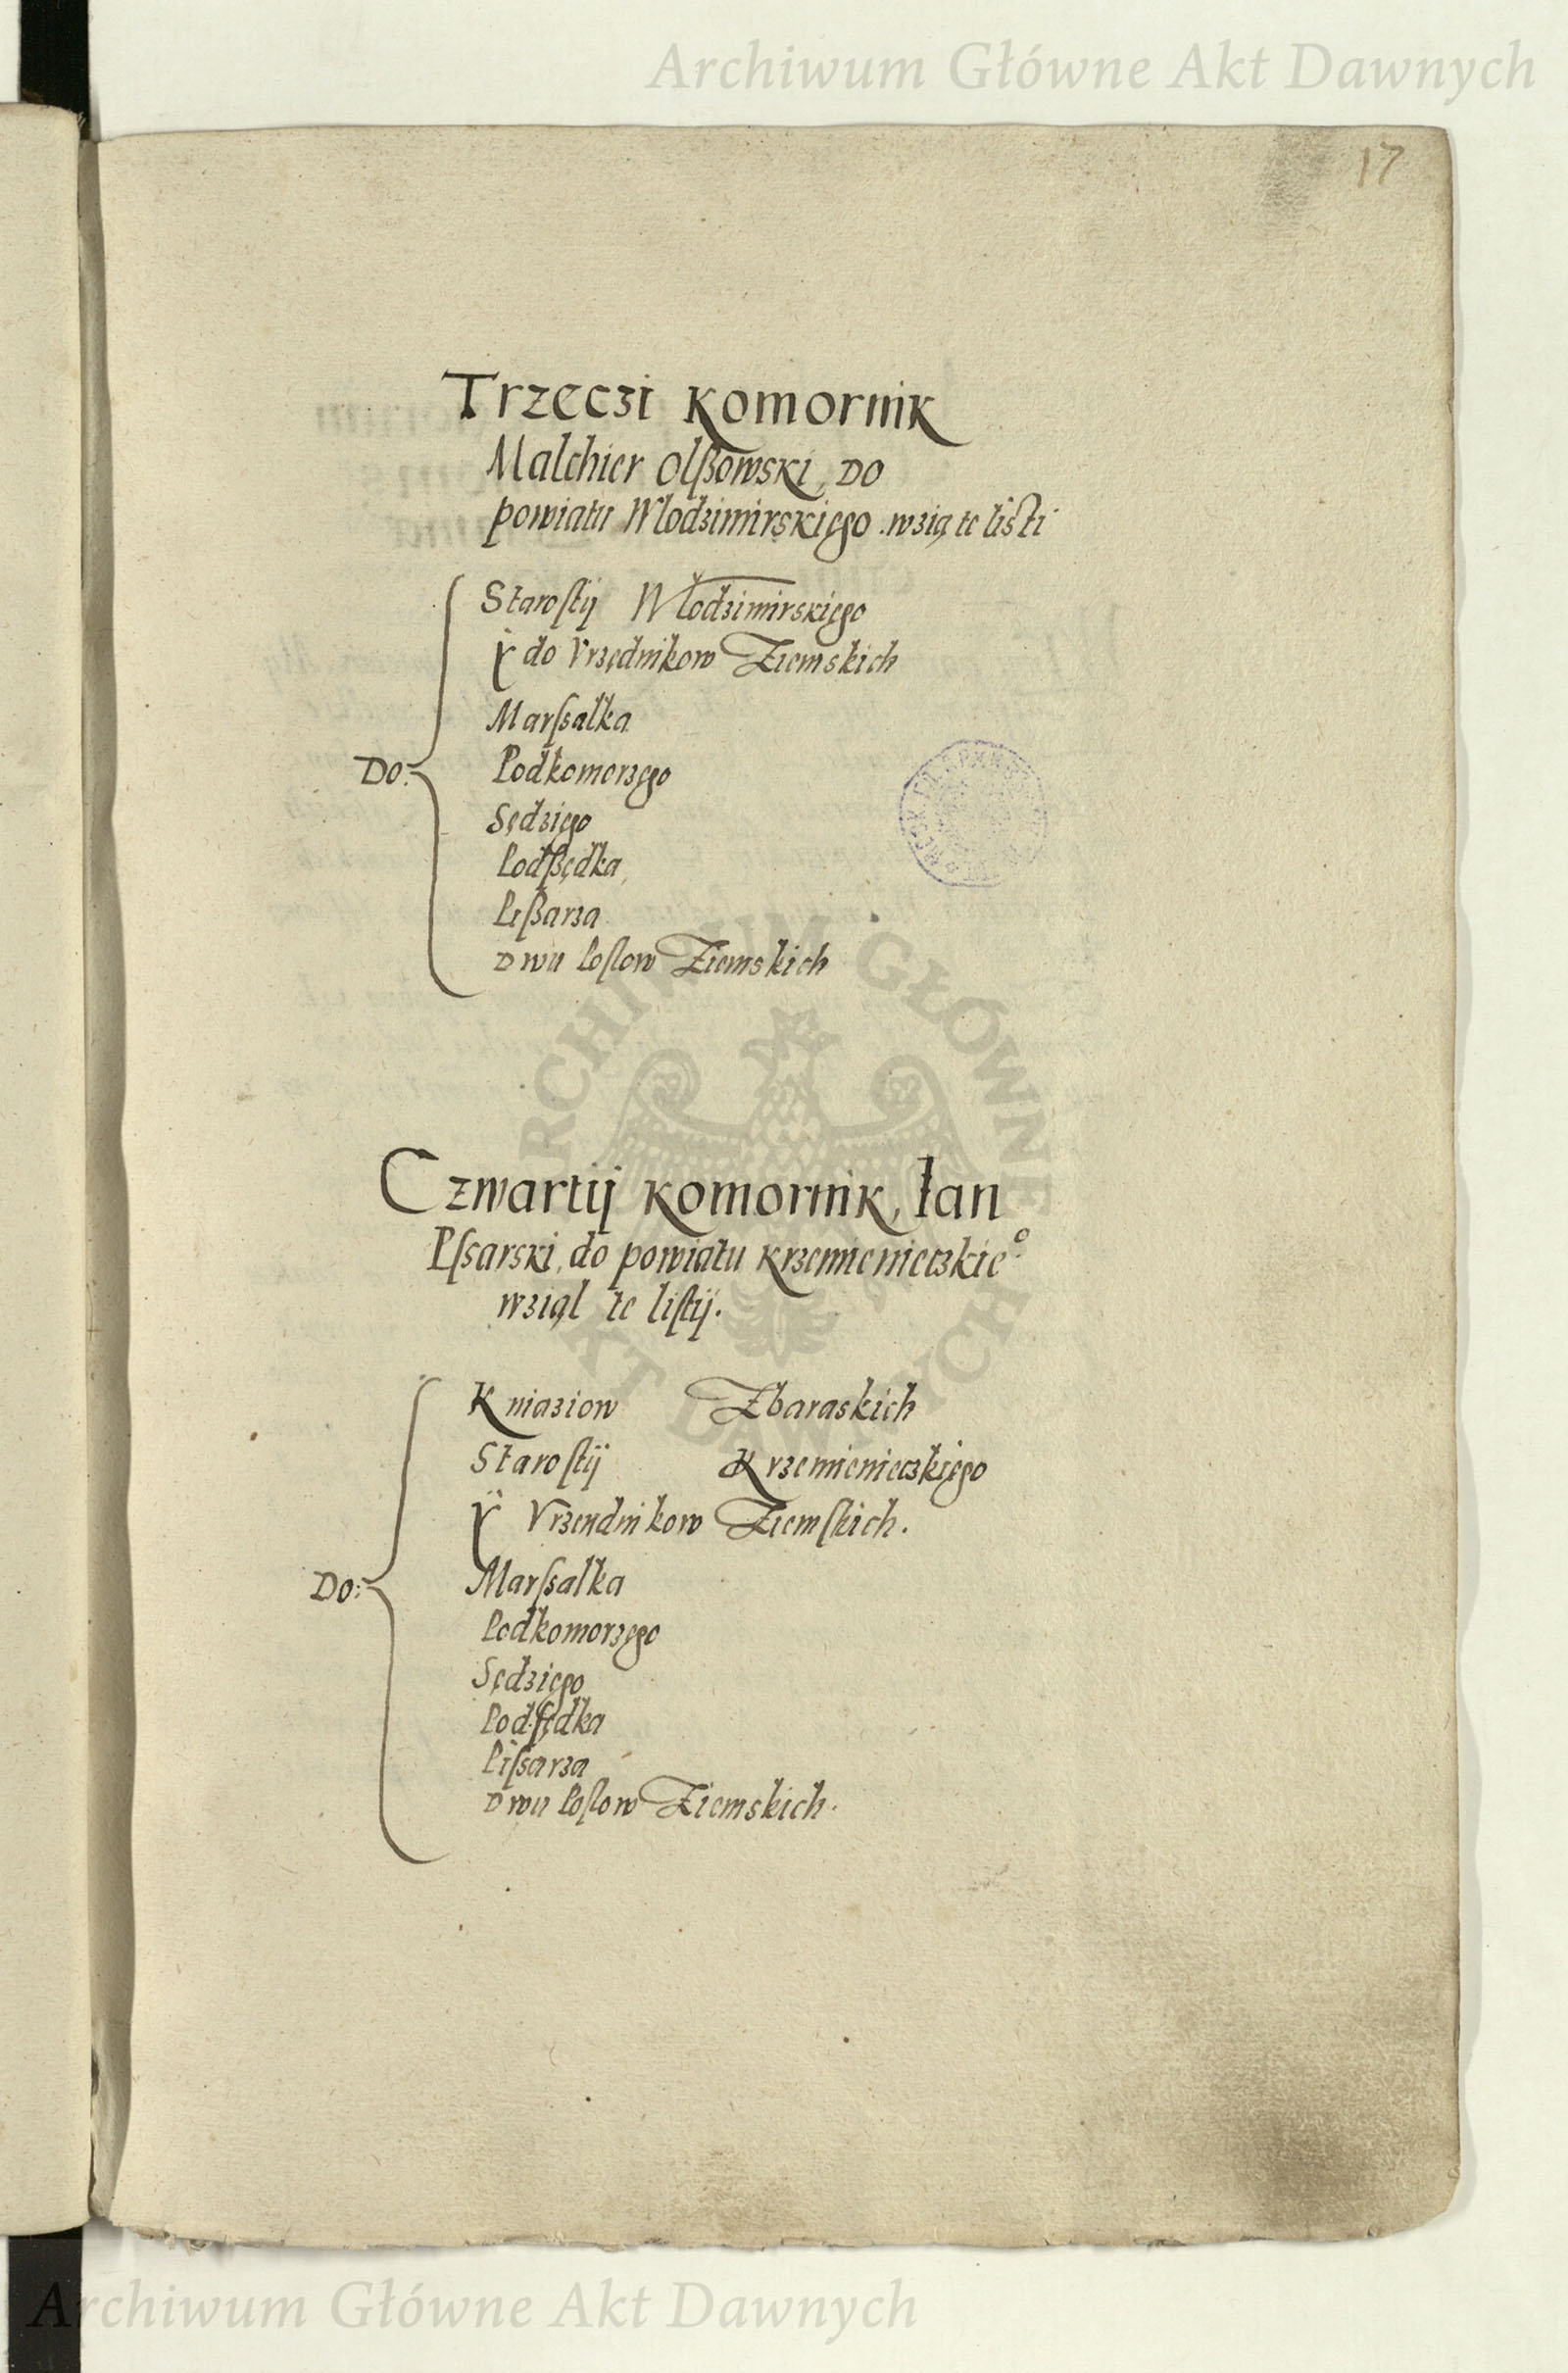 Archiwum Główne Akt Dawnych
17
Trzeczi Komornik
Malchier Olßowski, Do
powiatu Wlodzimirskięgo .wzią te listi
Starostij Wlodzimirskięgo
Ÿ do Vrzędnikow Ziemskich
Marssalka
Do: Podkomorzęgo
Sędzięgo
Podßędka,
Pißarza
Dwu Poslow Ziemskich
ARCHIWUM GŁÓWNE
AKT DAWNYCH
Czwartij Komornik, Ian
Pssarski, do powiatu Krzemienieczkie°
wziął te listij.
Kniaziow Zbaraskich
Starostij Krzemienieczkięgo
Ÿ Vrzendnikow Ziemskich.
Do: Marssalka
Podkomorzęgo
Sędzięgo
Podsędka
Pissarza
Dwu Poslow Ziemskich.
Archiwum Główne Akt Dawnych